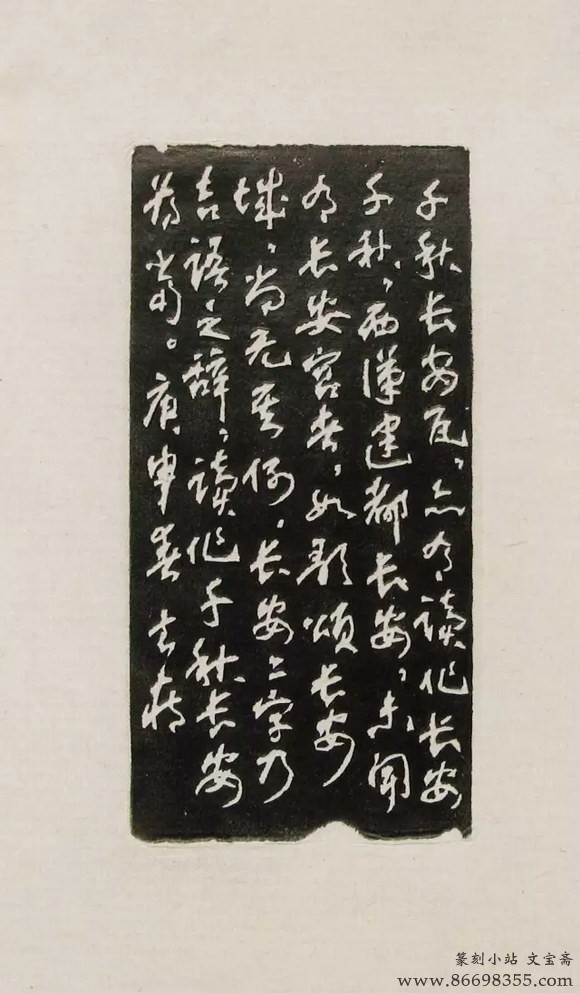 千秋长安瓦，亦有读作长安
千秋，西汉建都长安，未闻
有长安宫者，如歌颂长安
城，尚无其例。长安二字乃
吉语之辞，读作千秋长安
为当。庚申春去疾
篆刻小站 文宝斋
www.86698355.com